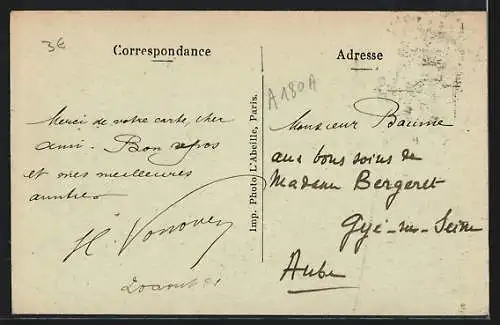 3€
Correspondance
Merci de votre carte, cher
ami. Bon repos
et mes meilleures
amitiés
H.
20 août
Imp. Photo L'Abeille, Paris.
Adresse
A180A
Monsieur Baume
aux bons soins de
Madame Bergeret
Gyé-sur-Seine
Aube